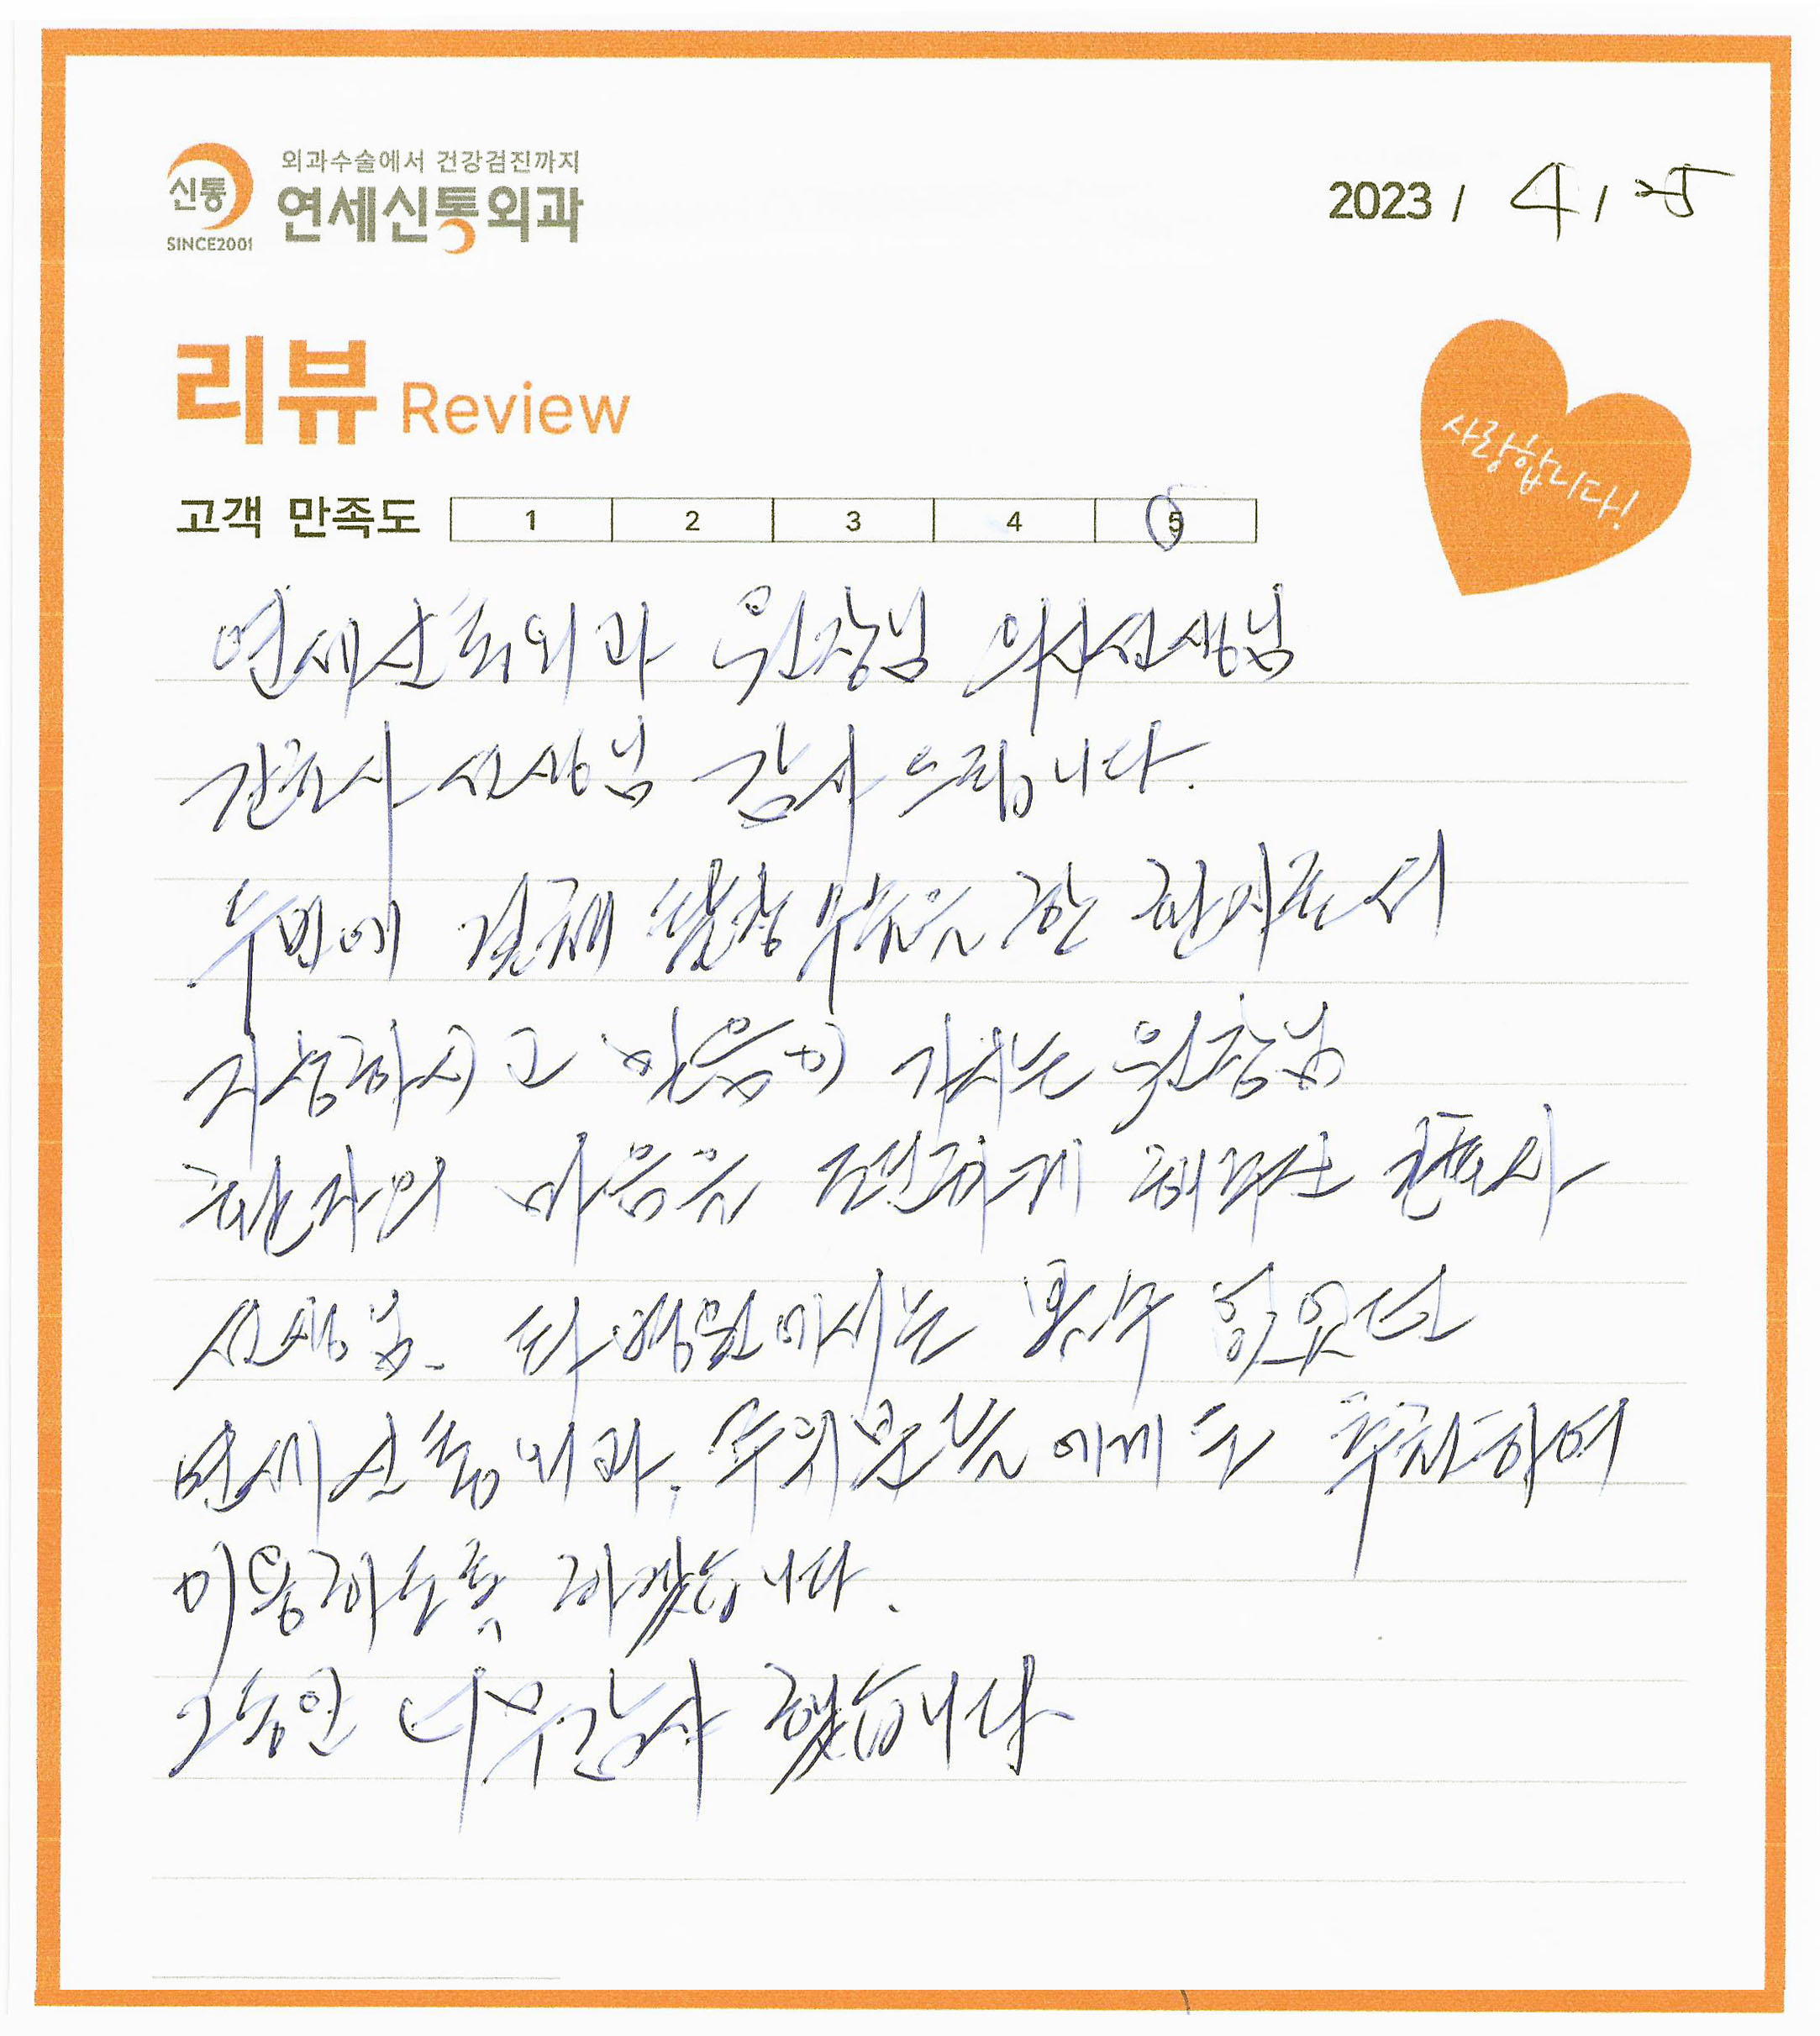 외과수술에서 건강검진까지
신통
연세신통외과
SINCE2001
2023 / 4 / 25
리뷰 Review
사랑합니다!
고객 만족도 1 2 3 4 5
연세신통외과 원장님 의사선생님
간호사 선생님 감사 드립니다.
두번에 걸쳐 수술을 한 환자로서
자상하시고 믿음이 가시는 원장님
환자의 마음을 편하게 해주신 간호사
선생님. 타 병원에서는 볼수 없었던
연세신통외과. 주위분들에게도 추천하여
이용하도록 하겠습니다.
그동안 너무 감사 했습니다